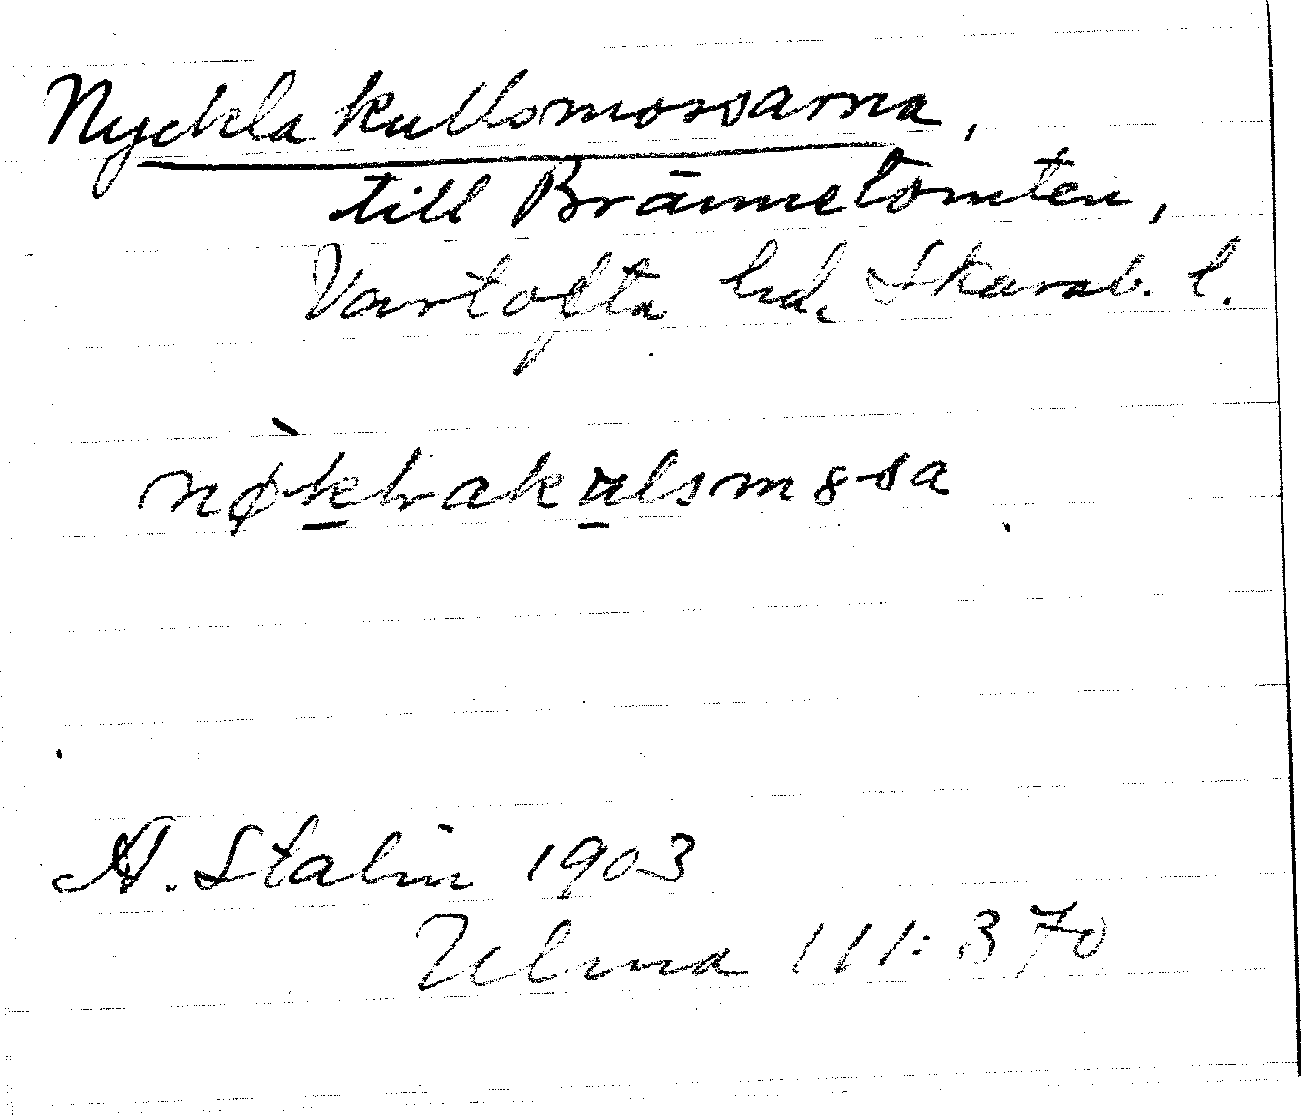 Nycklakullsmossarna,
till Brännetomten,
Vartofta hd, Skarab. l.
nø̀klrakulsm8sa
A. Stalin 1903
Ulma 111:370